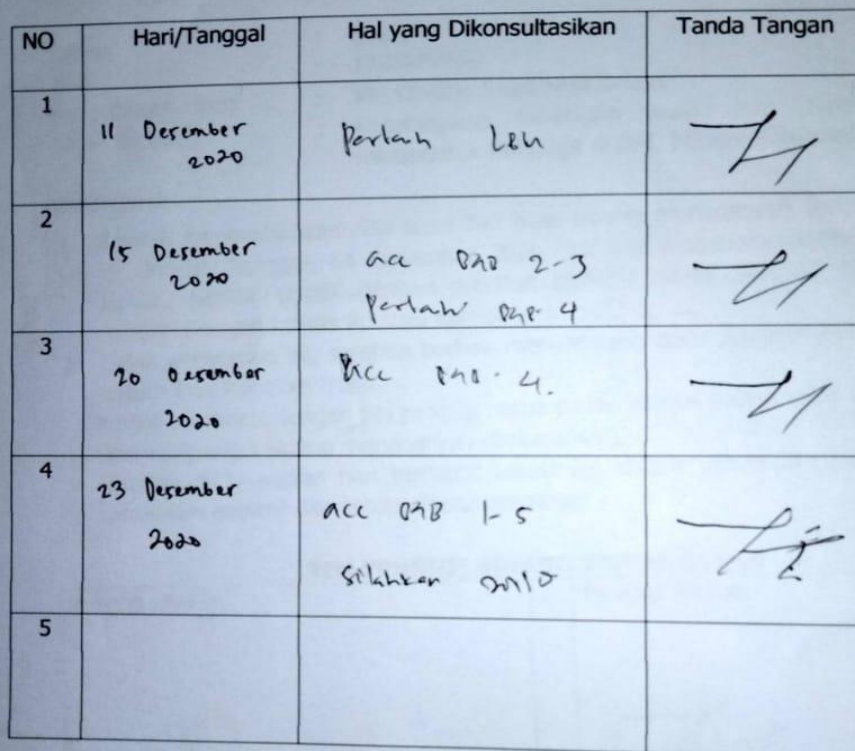 NO Hari/Tanggal Hal yang Dikonsultasikan Tanda Tangan
1
11 Desember
2020
2
15 Desember
2020
acc BAB 2-3
BAB 4
3
20 Desember
2020
Acc BAB 4.
4
23 Desember
2020
acc BAB 1-5
Silahkan
5